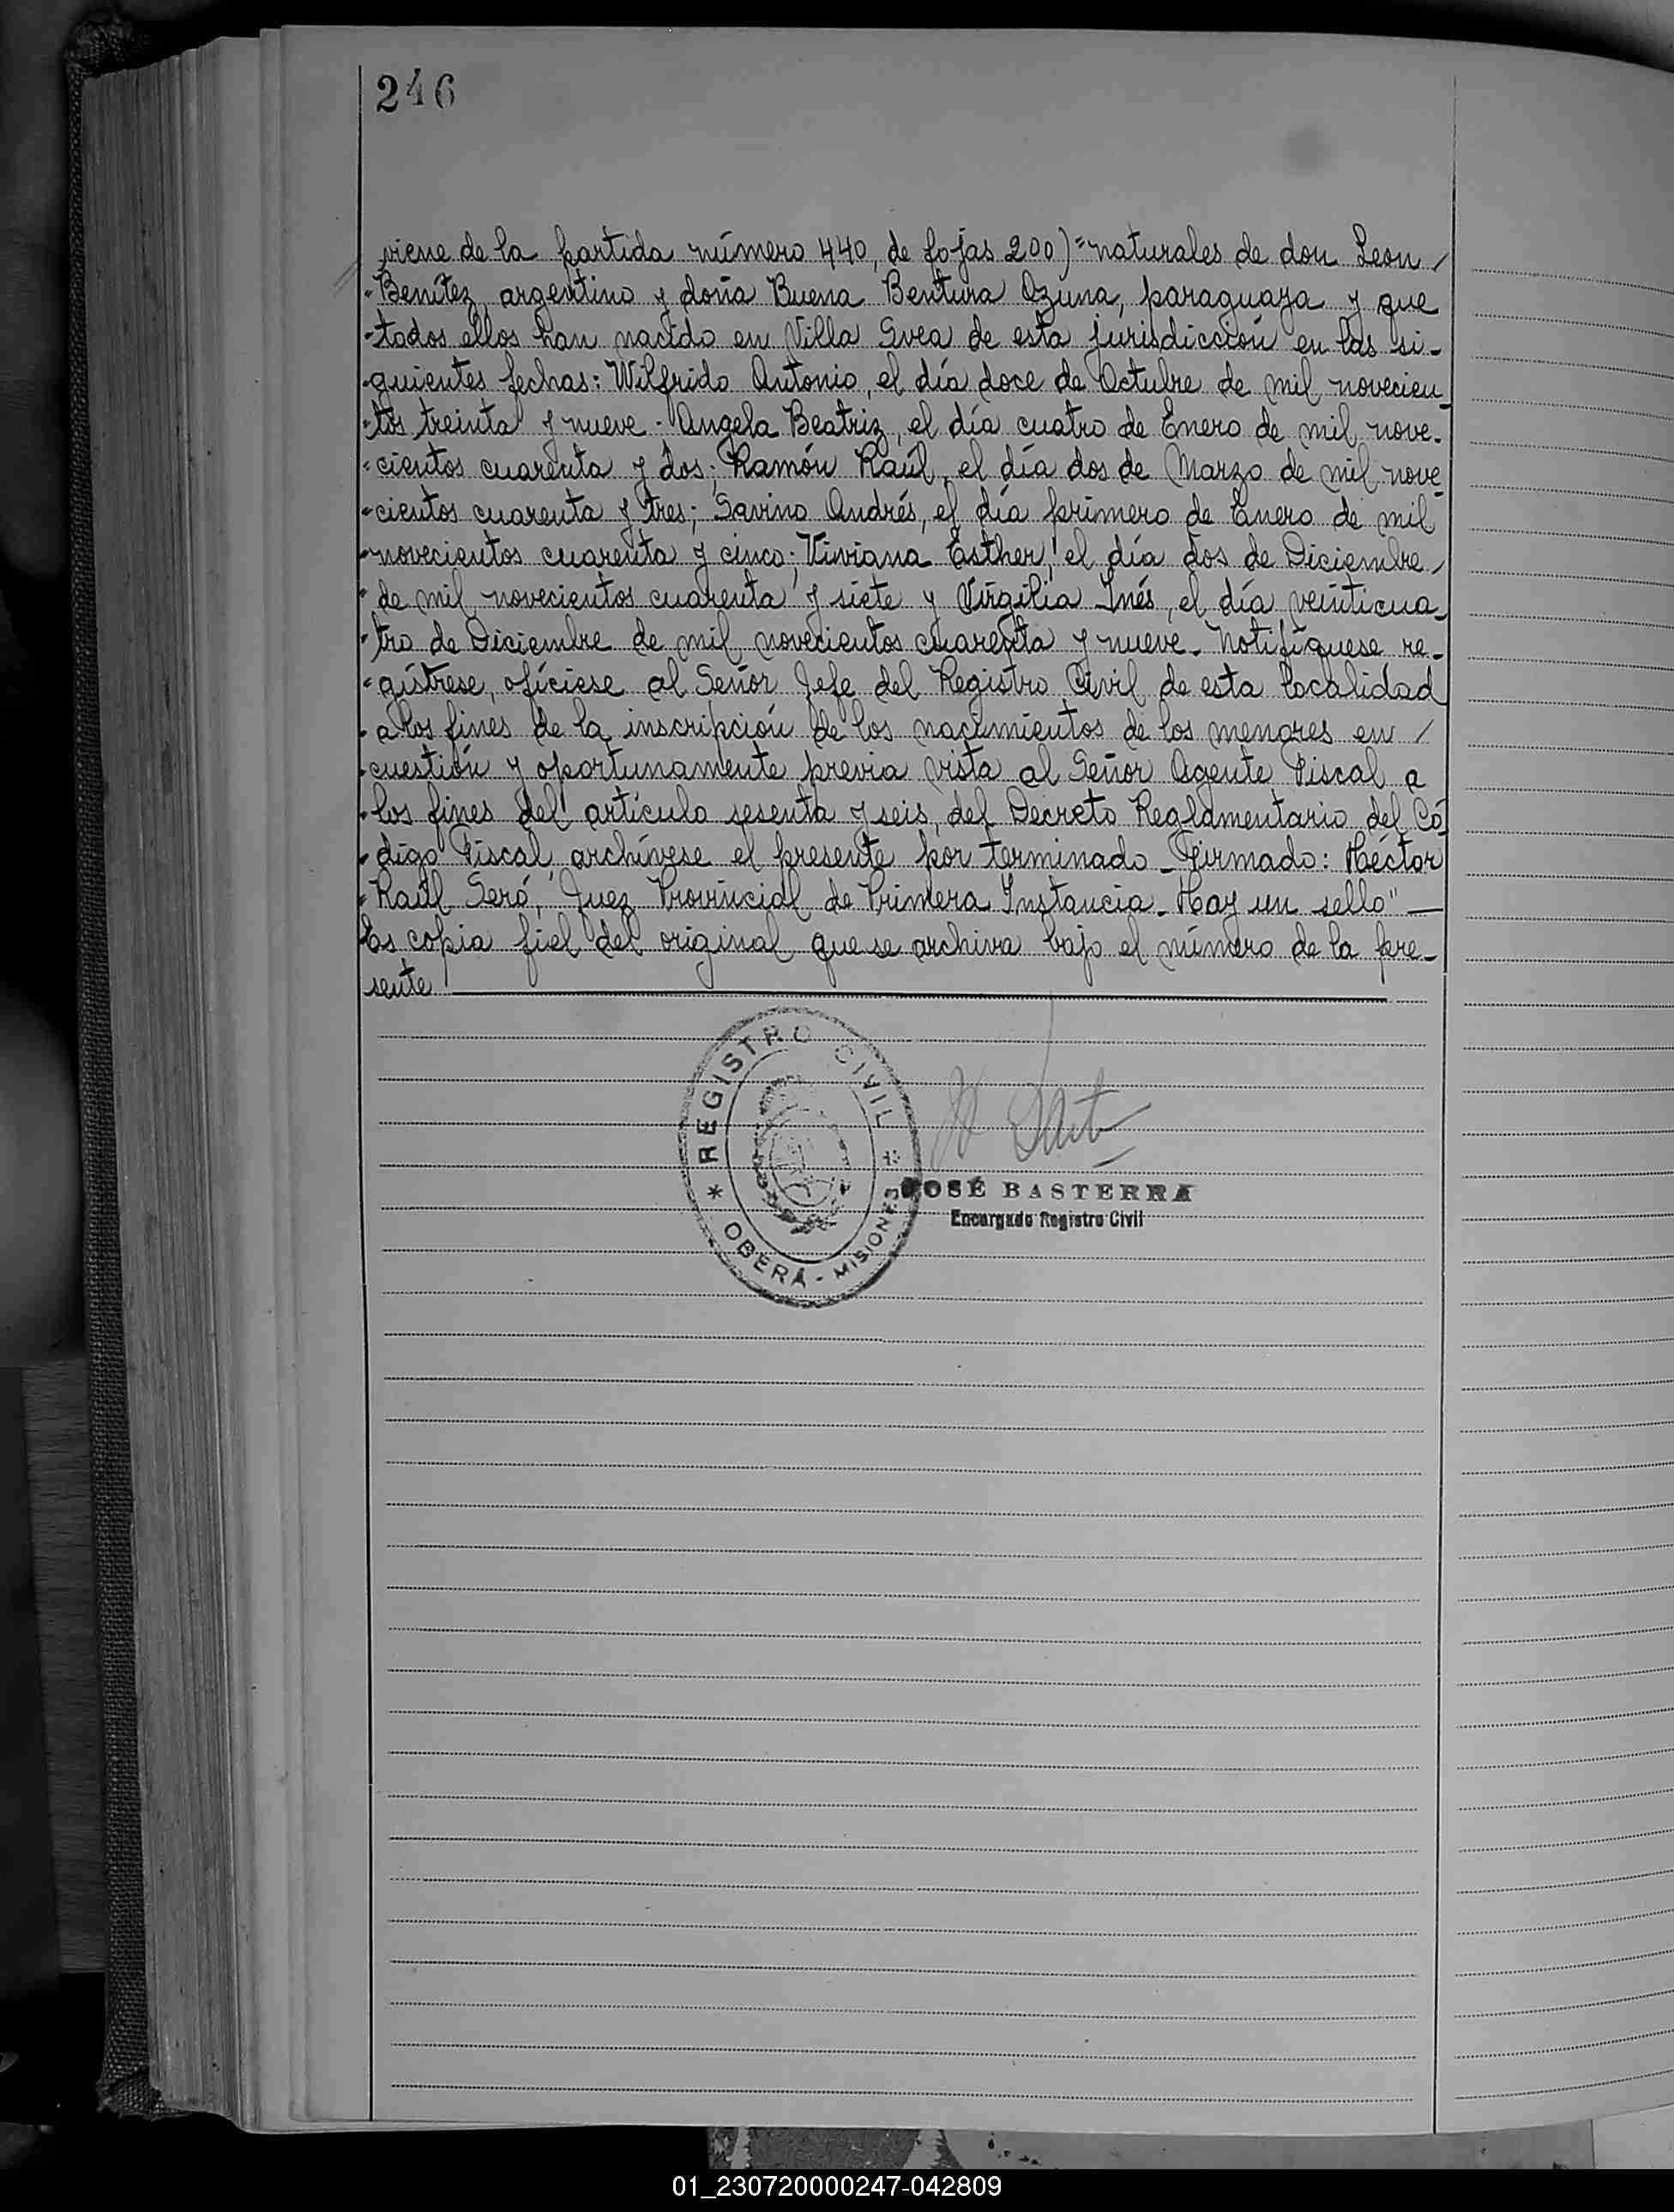 246
viene de la partida número 440, de fojas 200)="naturales de don Leon /
"Benítez, argentino y doña Buena Bentura Ozuna, paraguaya y que
"todos ellos han nacido en Villa Svea de esta jurisdicción en las si-
"guientes fechas: Wilfrido Antonio, el día doce de Octubre de mil novecien-
"tos treinta y nueve - Angela Beatriz, el día cuatro de Enero de mil nove-
"cientos cuarenta y dos; Ramón Raúl, el día dos de Marzo de mil nove-
"cientos cuarenta y tres; Savino Andrés, el día primero de Enero de mil
"novecientos cuarenta y cinco; Viviana Esther, el día dos de Diciembre /
"de mil novecientos cuarenta y siete y Virgilia Inés, el día veinticua-
"tro de Diciembre de mil novecientos cuarenta y nueve. Notifíquese re-
"gístrese, ofíciese al Señor Jefe del Registro Civil de esta localidad
"a los fines de la inscripción de los nacimientos de los menores en /
"cuestión y oportunamente previa vista al Señor Agente Fiscal a
"los fines del artículo sesenta y seis, del Decreto Reglamentario del Có-
"digo Fiscal, archívese el presente por terminado - Firmado: Héctor
"Raúl Seró, Juez Provincial de Primera Instancia - Hay un sello" —
Es copia fiel del original que se archiva bajo el número de la pre-
sente
* REGISTRO CIVIL *
OBERÁ - MISIONES
JOSÉ BASTERRA
Encargado Registro Civil
01_230720000247-042809